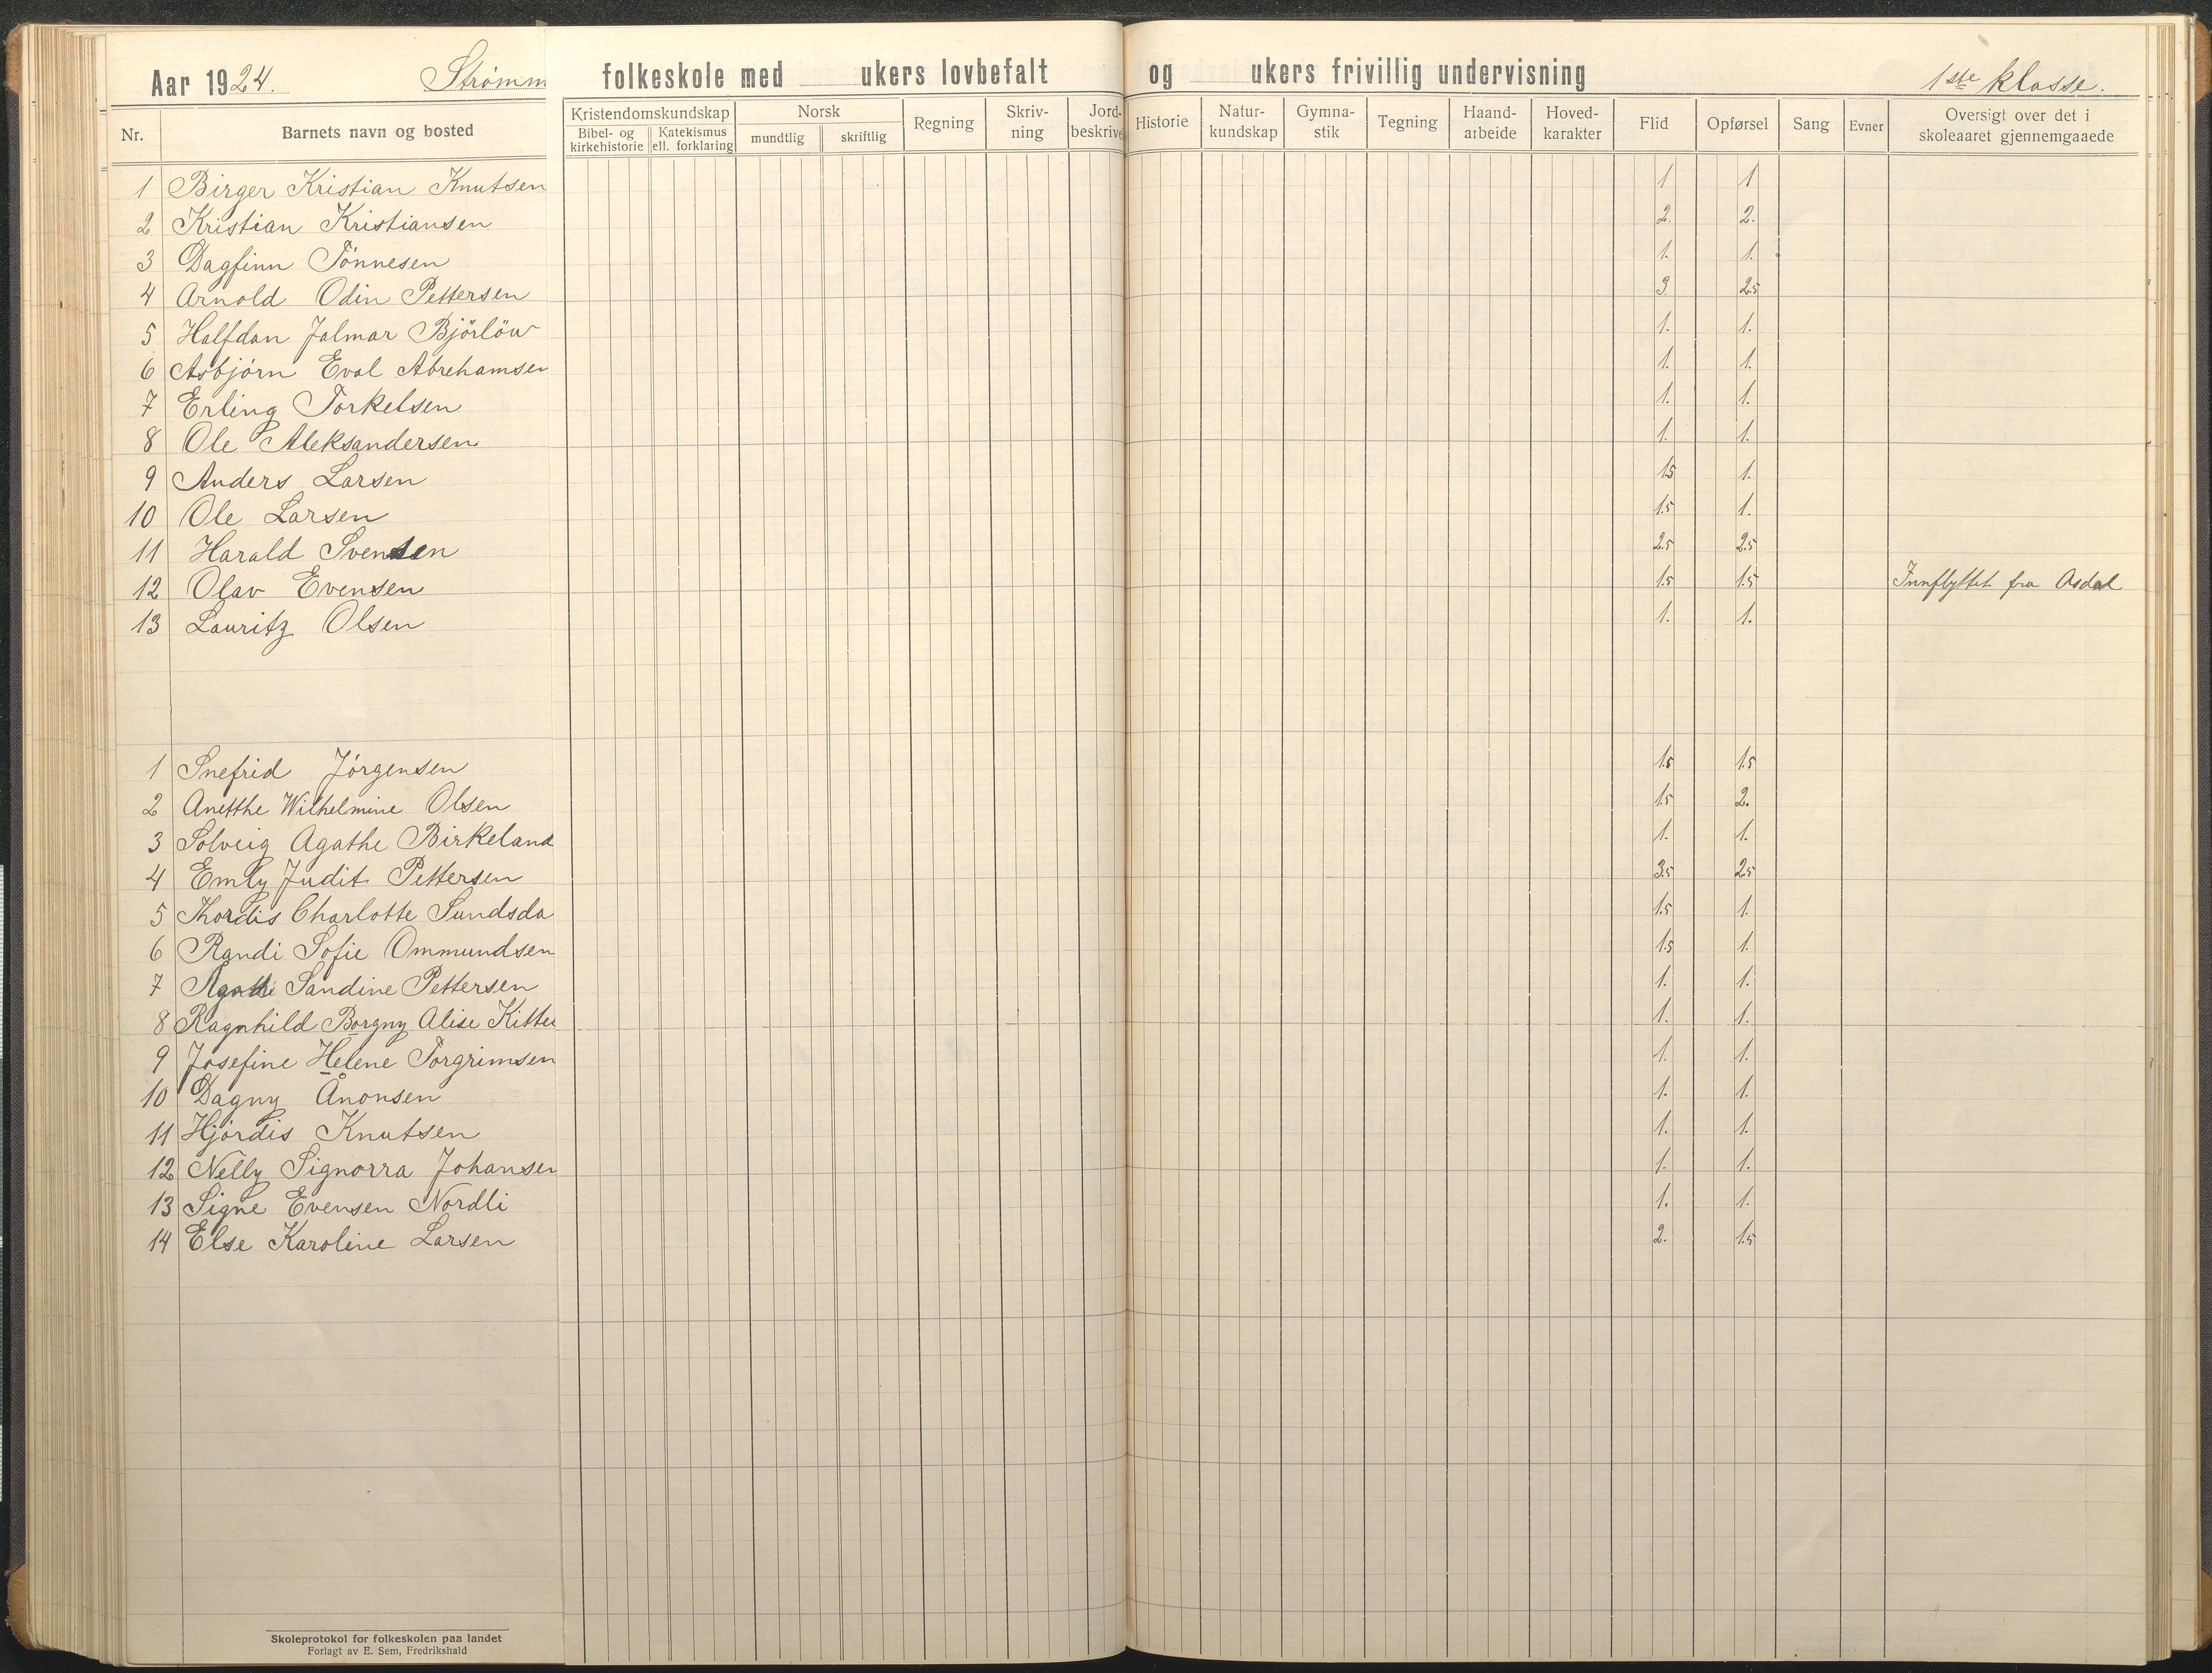 Aar 1924. Strømm folkeskole med ukers lovbefalt og ukers frivillig undervisning 1ste klasse.
Nr. Barnets navn og bosted Kristendomskundskap Bibel- og kirkehistorie Katekismus ell. forklaring Norsk mundtlig skriftlig Regning Skriv-ning Jord-beskrive Historie Natur-kundskap Gymna-stik Tegning Haand-arbeide Hoved-karakter Flid Opførsel Sang Evner Oversigt over det i skoleaaret gjennemgaaede
1 Birger Kristian Knutsen 1 1
2 Kristian Kristiansen 2. 2.
3 Dagfinn Tönnesen 1. 1.
4 Arnold Odin Pettersen 3. 2.5
5 Halfdan Jalmar Björlöw 1. 1.
6 Asbjørn Eval Abrehamsen 1. 1.
7 Erling Torkelsen 1. 1.
8 Ole Aleksandersen 1. 1.
9 Anders Larsen 1.5 1.
10 Ole Larsen 1.5 1.
11 Harald Svensen 2.5 2.5
12 Olav Evensen 1.5 1.5 Innflyttet fra Asdal
13 Lauritz Olsen 1. 1.
1 Snefrid Jörgensen 1.5 1.5
2 Anetthe Wilhelmine Olsen 1.5 2.
3 Solveig Agathe Birkeland 1. 1.
4 Emly Judit Pettersen 3.5 2.5
5 Thordis Charlotte Sundsda 1.5 1.
6 Randi Sofie Ommundsen 1.5 1.
7 Agathe Sandine Pettersen 1. 1.
8 Ragnhild Borgny Alise Kittel 1. 1.
9 Josefine Helene Torgrimsen 1. 1.
10 Dagny Ånonsen 1. 1.
11 Hjördis Knutsen 1. 1.
12 Nelly Signorra Johansen 1. 1.
13 Signe Evensen Nordli 1. 1.
14 Else Karoline Larsen 2. 1.5
Skoleprotokol for folkeskolen paa landet
Forlagt av E. Sem, Fredrikshald